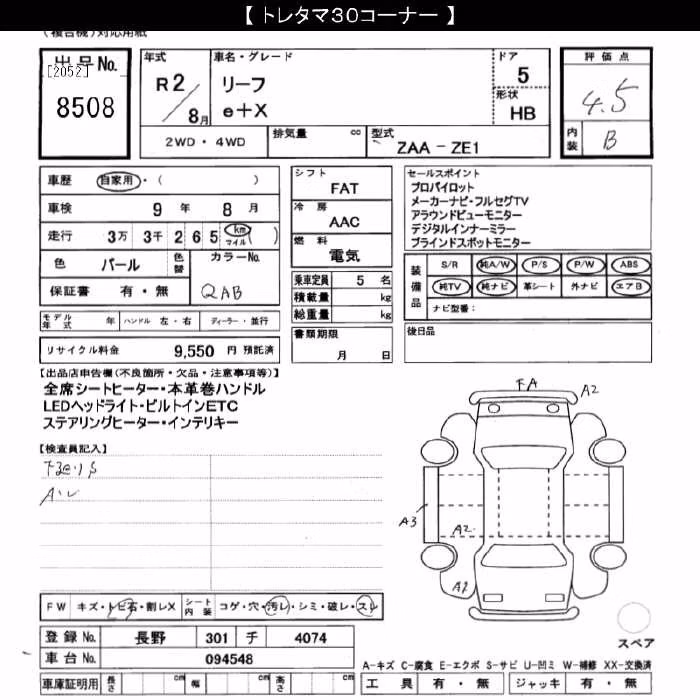 【 トレタマ30コーナー 】
(複合機)対応用紙
出品No.
[2052]
8508
年式
R 2/8月
車名・グレード
リーフ
e+X
ドア
5
形状
HB
評価点
4.5
内装
B
2WD・4WD
排気量 cc
型式
ZAA - ZE1
車歴 自家用・( )
車検 9年 8月
走行 3万 3千 2 6 5 km マイル ( )
色 パール 色替 カラーNo.
保証書 有・無 QAB
モデル年式 年 ハンドル 左・右 ディーラー・並行
リサイクル料金 9,550 円 預託済
シフト
FAT
冷房
AAC
燃料
電気
乗車定員 5 名
積載量 kg
総重量 kg
書類期限
月 日
セールスポイント
プロパイロット
メーカーナビ・フルセグTV
アラウンドビューモニター
デジタルインナーミラー
ブラインドスポットモニター
装備品
S/R 純A/W P/S P/W ABS
純TV 純ナビ 革シート 外ナビ エアB
ナビ型番:
後日品
【出品店申告欄(不良箇所・欠品・注意事項等)】
全席シートヒーター・本革巻ハンドル
LEDヘッドライト・ビルトインETC
ステアリングヒーター・インテリキー
【検査員記入】
FA
A2
A3
A2
A2
FW キズ・トビ石・割レX シート内装 コゲ・穴・汚レ・シミ・破レ・スレ
登録No. 長野 301 チ 4074
車台No. 094548
車庫証明用 長さ cm 幅 cm 高さ cm
スペア
A-キズ C-腐食 E-エクボ S-サビ U-凹ミ W-補修 XX-交換済
工具 有・無 ジャッキ 有・無